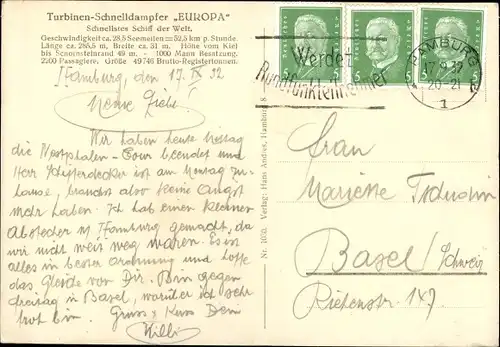 Turbinen-Schnelldampfer „EUROPA"
Schnellstes Schiff der Welt.
Geschwindigkeit ca. 28,5 Seemeilen = 52,5 km p. Stunde.
Länge ca. 285,5 m, Breite ca. 31 m. Höhe vom Kiel
bis Schornsteinrand 49 m. - 1000 Mann Besatzung.
2200 Passagiere. Größe 49746 Brutto-Registertonnen.
Hamburg, den 17. IX 32
Meine
Wir haben heute Mittag
die Westphalen-Tour beendet und
Herr ist am Montag zu-
hause, brauchst also keine Angst
mehr haben. Ich hab einen kleinen
Abstecher n. Hamburg gemacht, da
wir nicht weit weg waren. Es ist
alles in bester Ordnung und hoffe
das Gleiche von Dir. Bin gegen
Freitag in Basel, worüber ich sehr
froh bin. Gruss & Kuss Dein
Willi
Nr. 1030. Verlag: Hans Andres, Hamburg 8
Werdet
Rundfunkteilnehmer
HAMBURG
17.9.32
20-21
1
5 5
5 5
5 5
Frau
Mariette
Basel/Schweiz
147